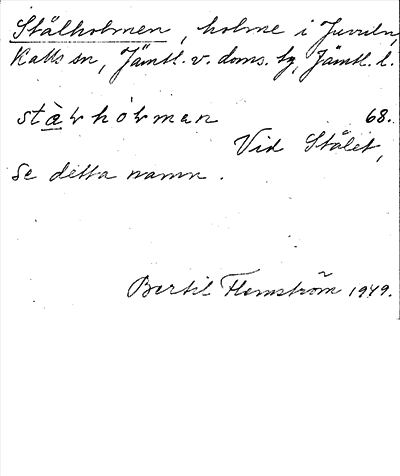 Stålholmen, holme i Juveln,
Kalls sn, Jämtl. v. doms. tg, Jämtl. l.
stàlhólman 68.
Vid Stålet,
se detta namn.
Bertil Flemström 1949.